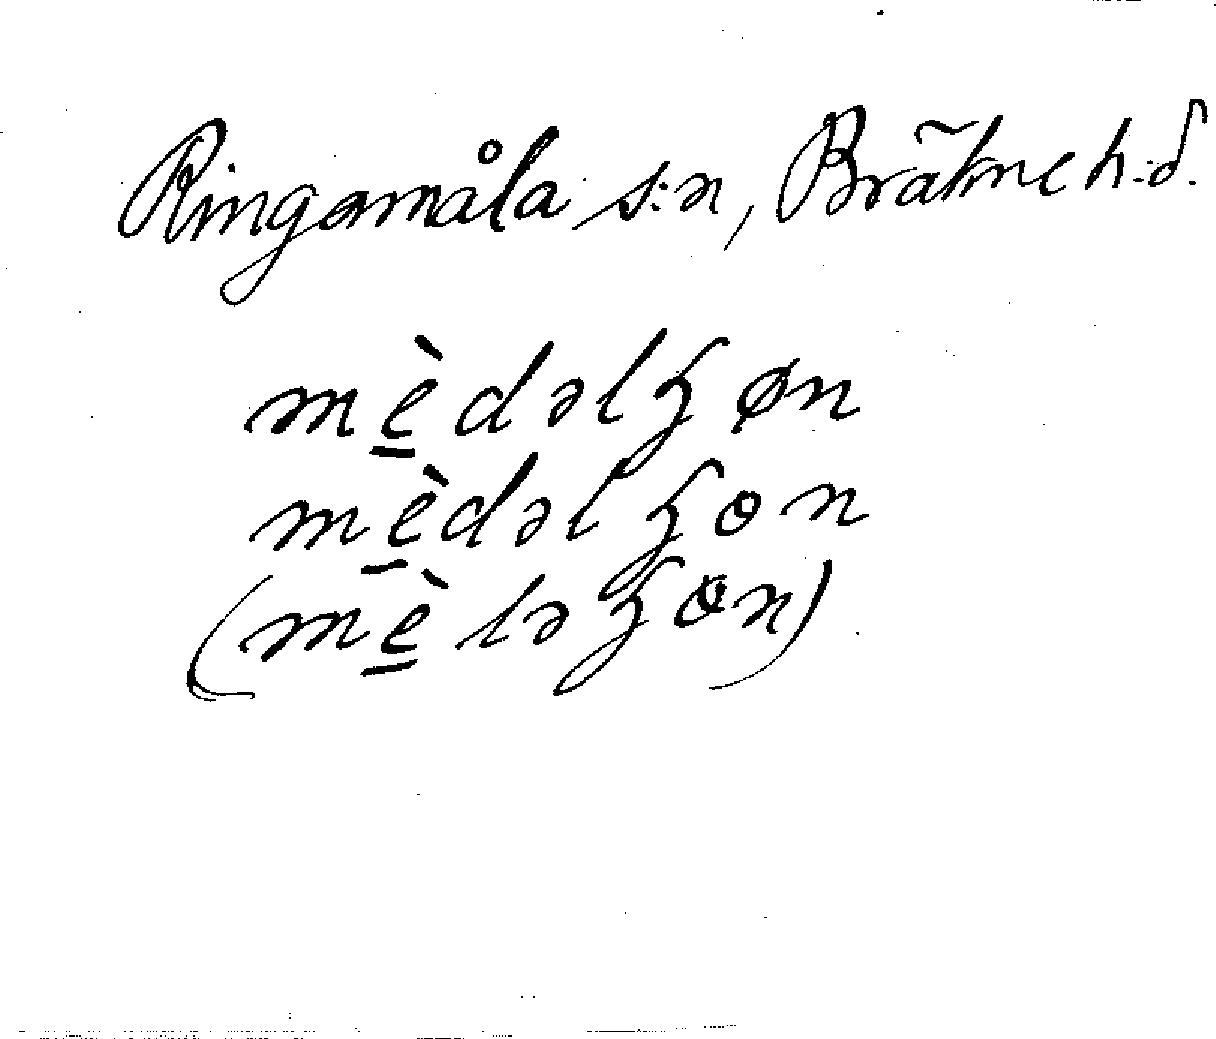 Ringamåla s:n, Bräkne h:d.
mèdəlʒøn
mèdəlʒɵn
(mèləʒɵn)